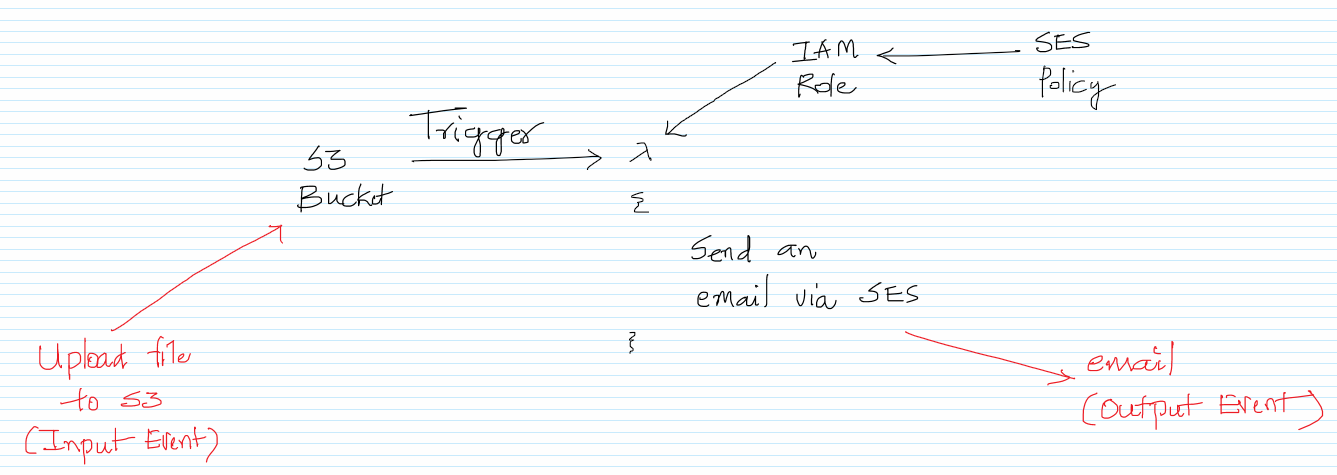 IAM
Role
SES
Policy
Trigger
S3
Bucket
λ
{
Send an
email via SES
}
Upload file
to S3
(Input Event)
email
(Output Event)